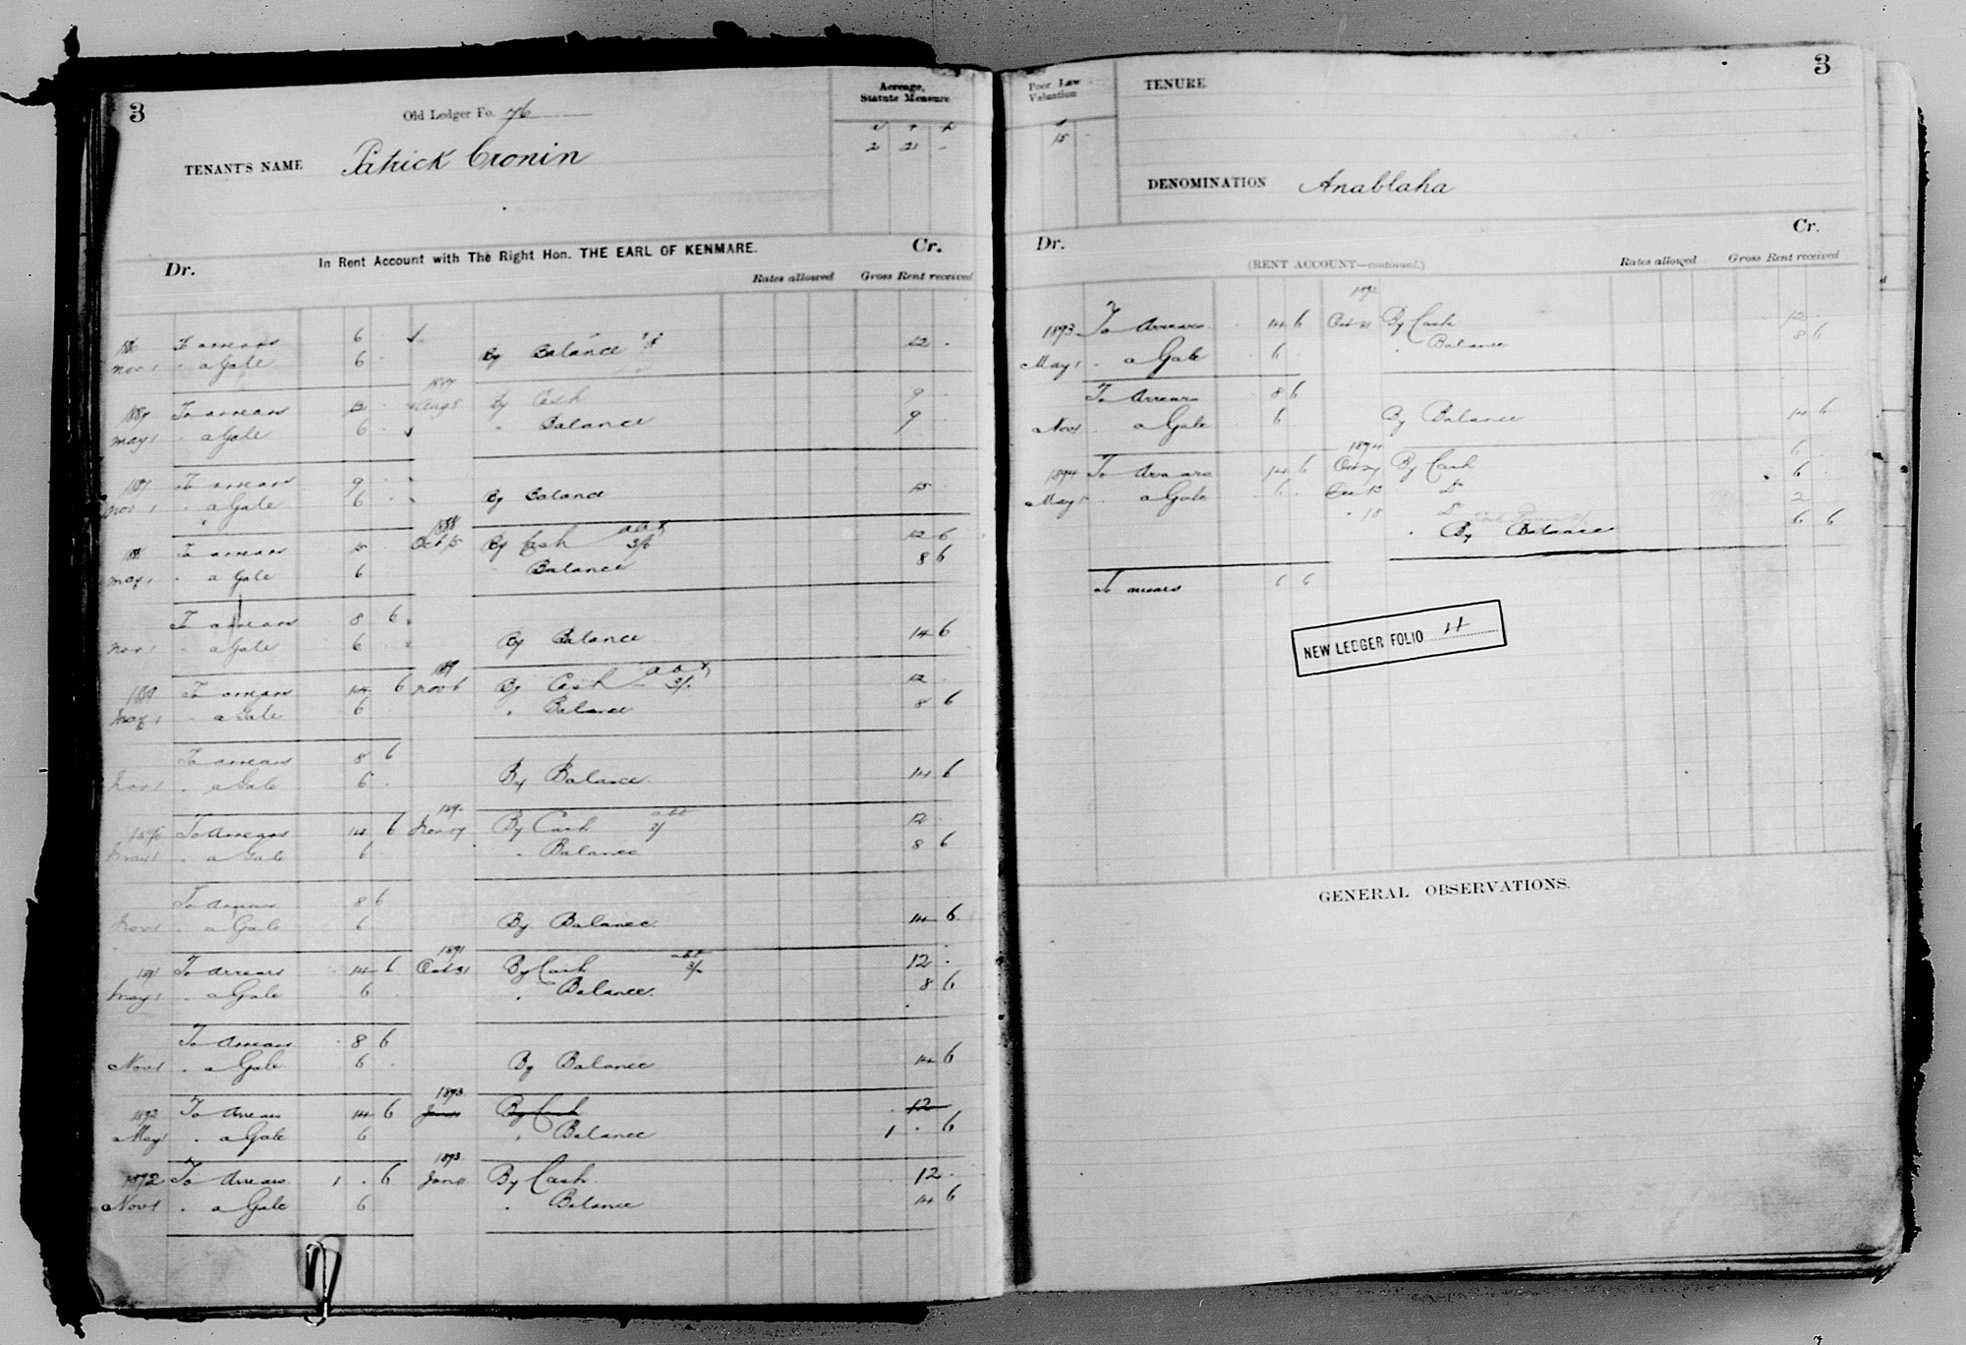 3
Old Ledger Fo. 76
Acreage,
Statute Measure
TENANT'S NAME Patrick Cronin
a r p
2 21 -
In Rent Account with The Right Hon. THE EARL OF KENMARE.
Dr. Cr.
Rates allowed Gross Rent received
To arrears 6
Nov 1 " a Gale 6 By Balance 12
1887 To arrears 12 1887 Aug 8 By Cash 9
May 1 " a Gale 6 " Balance 9
1887 To arrears 9
Nov 1 " a Gale 6 By Balance 15
1888 To arrears 15 1888 Oct 15 By Cash 3/6 12 6
May 1 " a Gale 6 Balance 8 6
To arrears 8 6
Nov 1 " a Gale 6 By Balance 14 6
1889 To arrears 14 6 1889 Nov 6 By Cash 3/- 12
May 1 " a Gale 6 " Balance 8 6
To arrears 8 6
Nov 1 " a Gale 6 By Balance 14 6
1890 To Arrears 14 6 1890 Nov By Cash abt 3/ 12
May 1 " a Gale 6 " Balance 8 6
To Arrears 8 6
Nov 1 " a Gale 6 By Balance 14 6
1891 To Arrears 14 6 1891 Oct 31 By Cash abt 3/- 12
May 1 " a Gale 6 " Balance 8 6
To Arrears 8 6
Nov 1 " a Gale 6 By Balance 14 6
1892 To Arrears 14 6 1893 By Cash 12
May 1 " a Gale 6 " Balance 1 . 6
1892 To Arrears 1 . 6 1893 Jan By Cash 12
Nov 1 " a Gale 6 " Balance 14 6
3
Poor Law
Valuation
TENURE
15
DENOMINATION Anablaha
Dr. Cr.
(RENT ACCOUNT—continued.)
Rates allowed Gross Rent received
1893
1893 To Arrears 14 6 Oct 21 By Cash 12
May 1 " a Gale 6 " Balance 8 6
To Arrears 8 6
Nov 1 a Gale 6 By Balance 14 6
1894
1894 To Arrears 14 6 Oct By Cash 6
May 1 " a Gale 6 Dec 13 Do 6
" 18 Do 2
" By Balance 6 6
To arrears 6 6
NEW LEDGER FOLIO 4
GENERAL OBSERVATIONS.